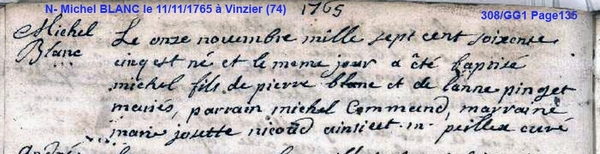 N- Michel BLANC le 11/11/1765 à Vinzier (74)
1765
308/GG1 Page135
Michel
Blanc
Le onze novembre mille sept cent soixente
cinq est né et le meme jour a été baptisé
michel fils de pierre blanc et de Janne pinget
mariés, parrain michel Command, marraine
marie josette nicoud ainsi est. m. peillex curé